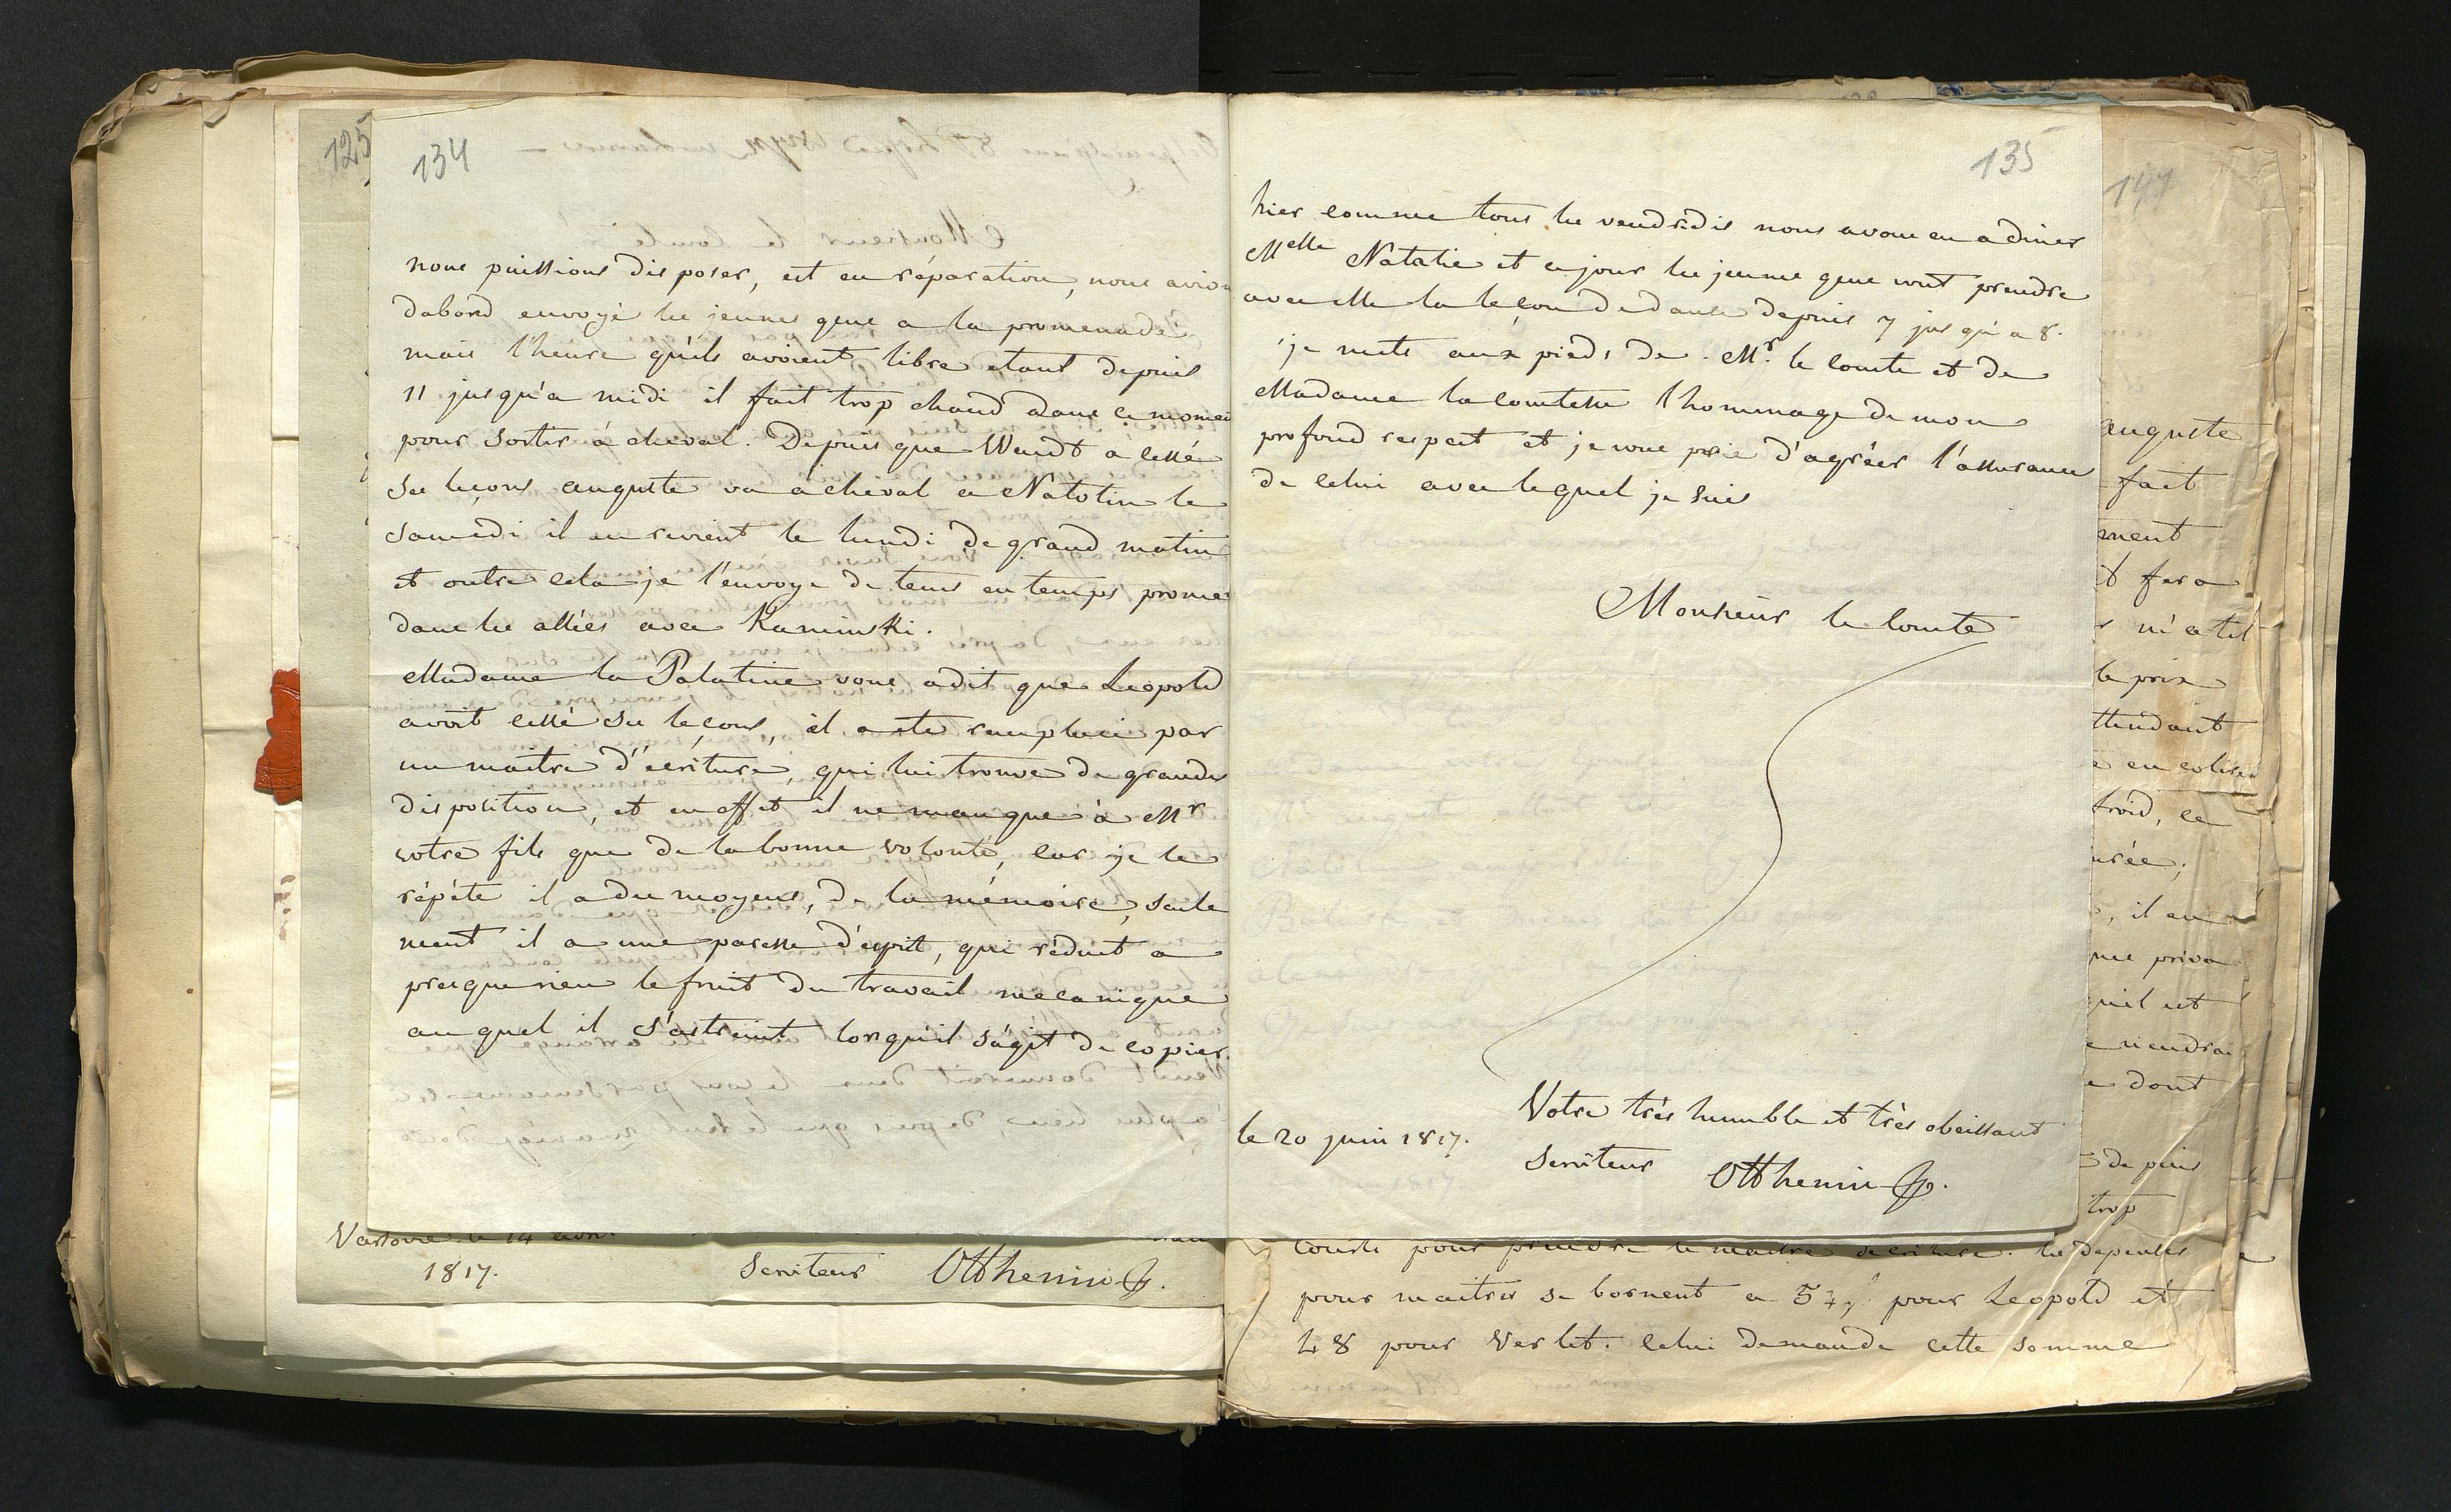 134
nous puissions disposer, est en réparation, nous avio
dabord envoyé les jeunes gens a la promenade
mais l'heure qu'ils avoient libre etant depuis
11 jusqu'a midi il fait trop chaud dans ce momen
pour sortir à cheval. Depuis que Wendt a cessé
ses leçons auguste va a cheval a Natolin le
samedi il en revient le lundi de grand matin
et outre cela je l'envoye de tems en temps prome
dans les allées avec Kaminski.
Madame la Palatine vous a dit que Leopold
avoit cessé ses leçons, il a ete remplacé par
un maitre d'écriture, qui lui trouve de grandes
disposition, et en effet il ne manque à Mr
votre fils que de la bonne volonté, car je le
répéte il a du moyens, de la mémoire, seule
ment il a une paresse d'esprit, qui réduit a
presque rien le fruit du travail mecanique
au quel il s'astreint lorsqu'il s'agit de copier.
135
hier comme tous les vendredis nous avons eu a diner
Melle Natalie et ce jour les jeunes gens vont prendre
avec elle la leçon de danse depuis 7 jusqu'a 8.
je mets aux pieds de Mr. le comte et de
Madame la comtesse l'hommage de mon
profond respect et je vous prie d'agréer l'assurance
de celui avec lequel je suis
Monsieur le comte
Votre très humble et très obeissant
le 20 juin 1817.
serviteur Otthenin
125
Varsovie le 14 avri
1817.
serviteur Otthenin
auguste
fait
ment
it fera
r m'a til
le prix
ttendant
e en colise
froid, ce
urée;
, il en
me priva
quil est
e viendrai
e dont
depuis
trop
courts pour prendre le maitre decriture. les depenses
pour maitres se bornent a 54 pour Leopold et
48 pour Verlet. celui demande cette somme